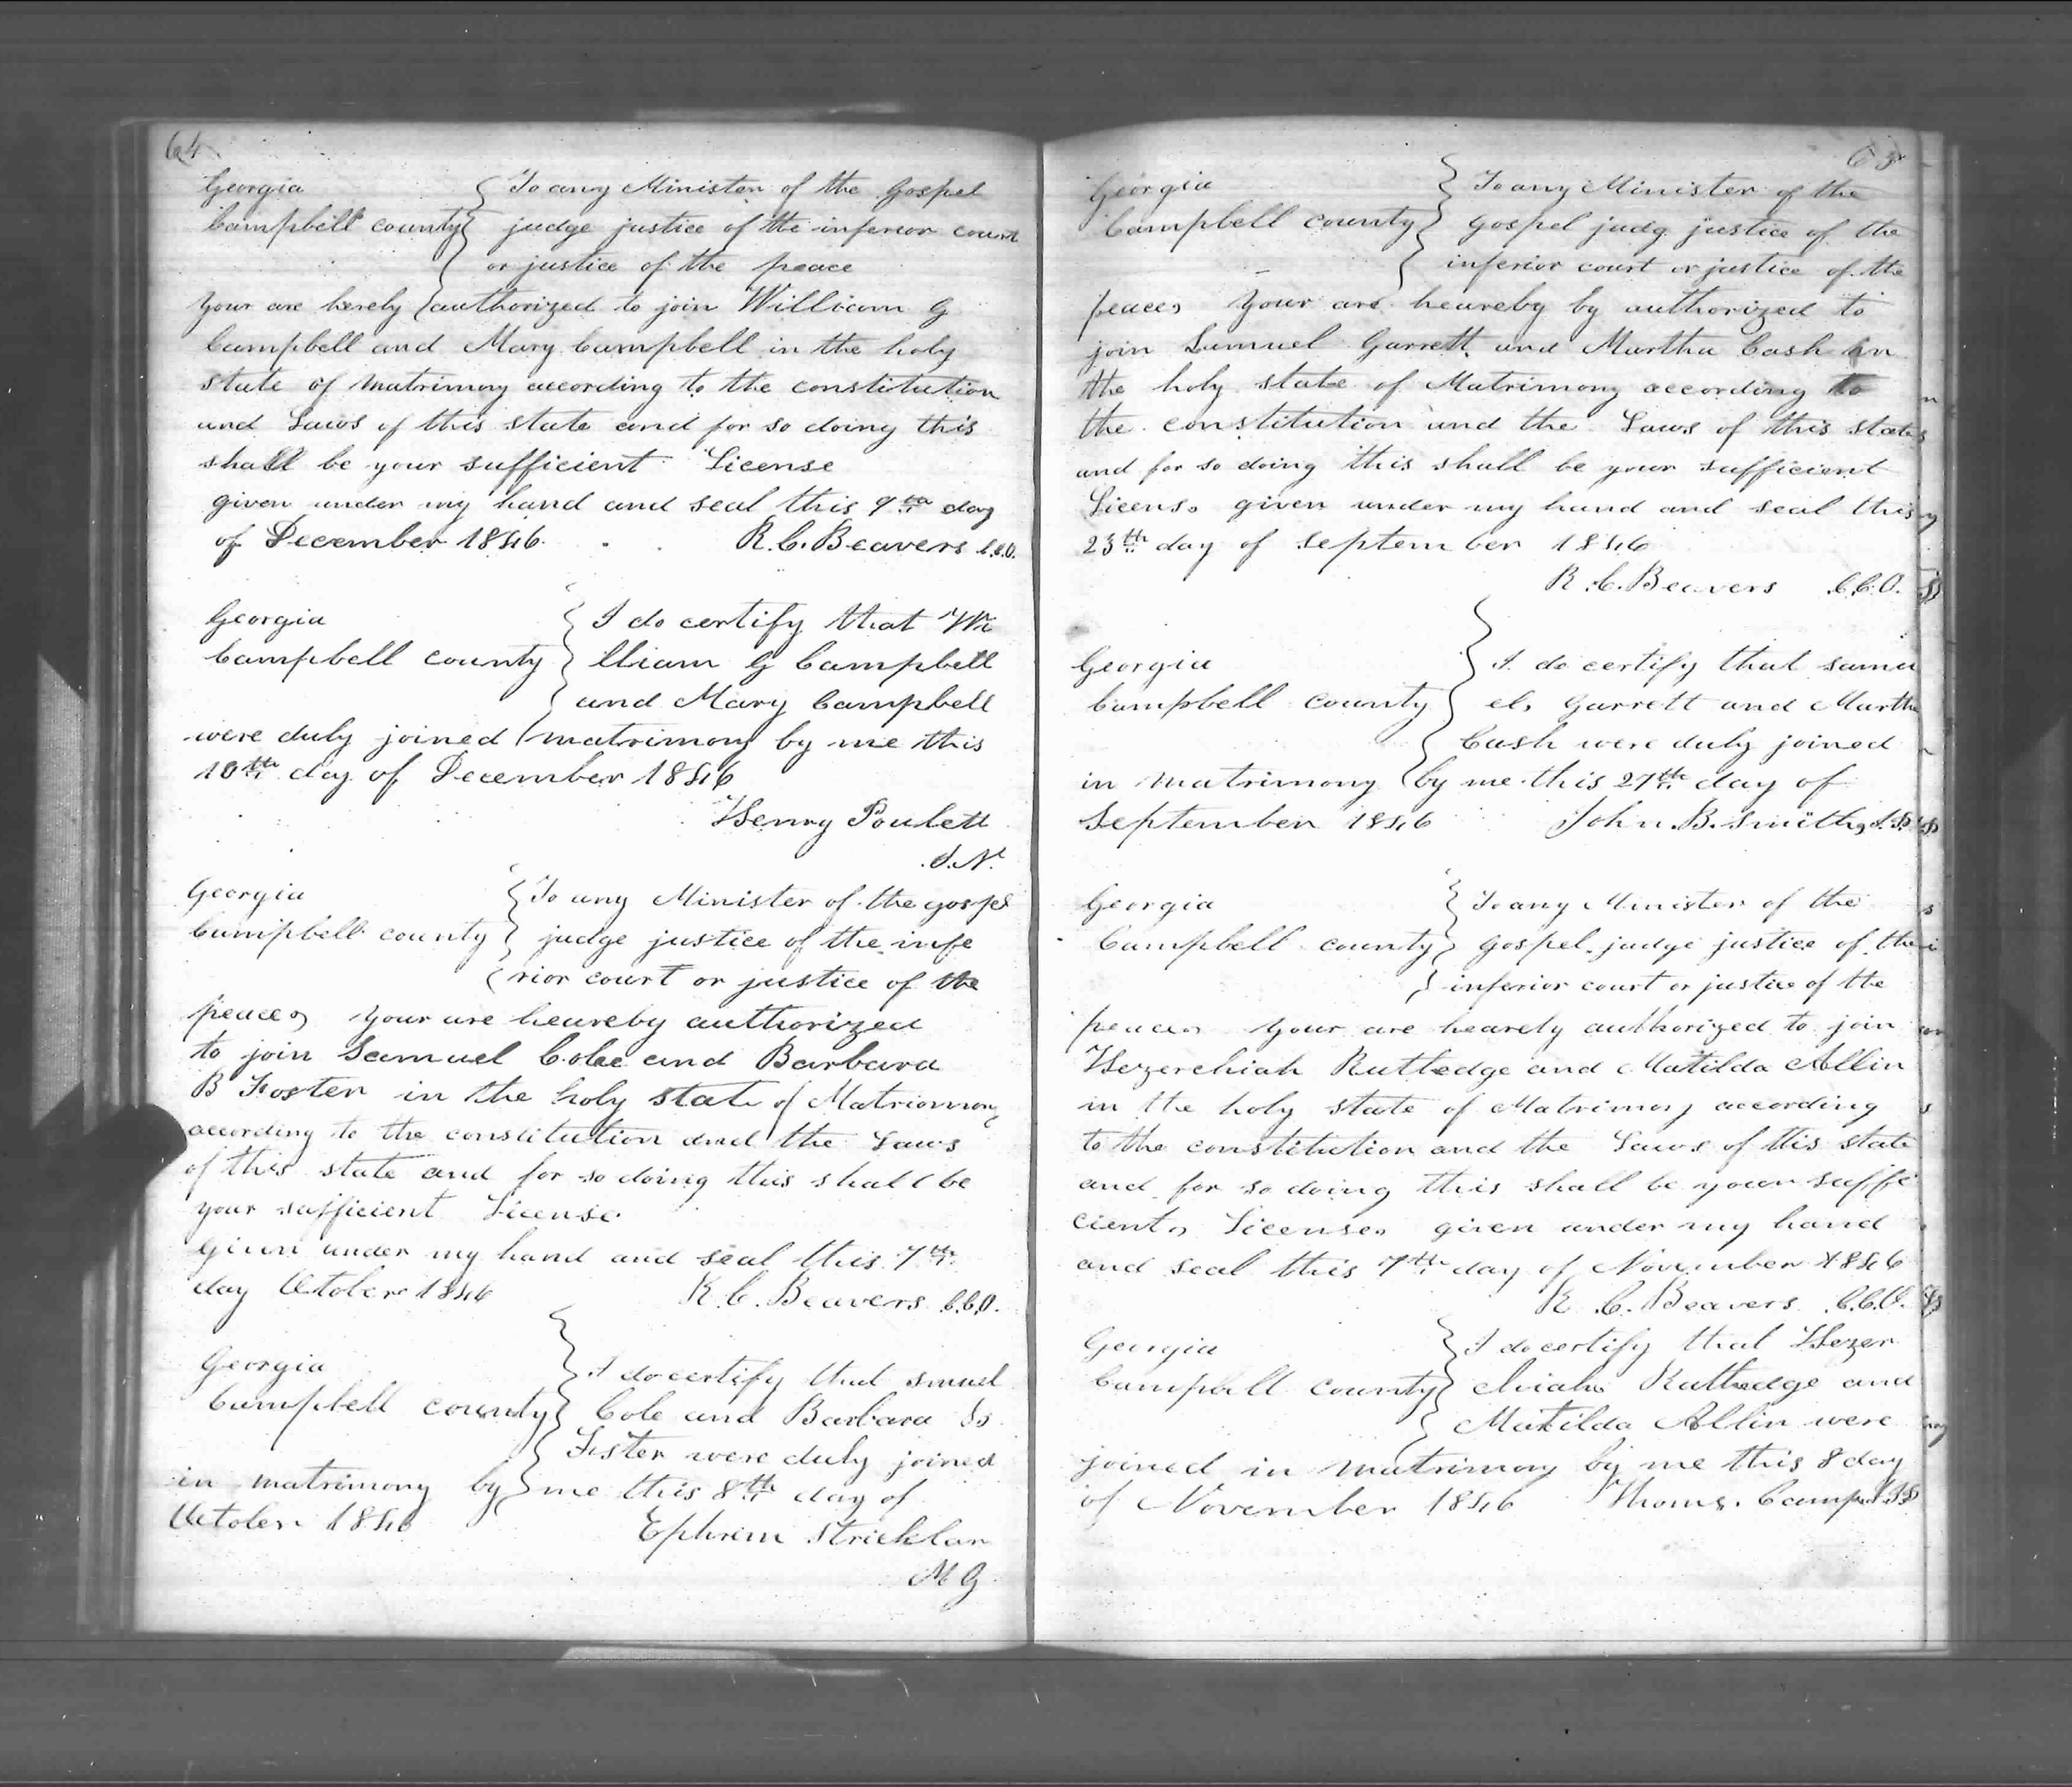 64
Georgia
Campbell county
To any Minister of the Gospel
judge justice of the inferior court
or justice of the peace
your are hereby authorized to join William G
Campbell and Mary Campbell in the holy
state of matrimony according to the constitution
and Laws of this state and for so doing this
shall be your sufficient License
given under my hand and seal this 9th day
of December 1846. R. C. Beavers C.C.O.
Georgia
Campbell county
I do certify that Wi
lliam G Campbell
and Mary Campbell
were duly joined matrimony by me this
10th day of December 1846
Henry Poulett
Georgia
Campbell county
To any Minister of the gospel
judge justice of the infe
rior court or justice of the
peace, your are heareby authorized
to join Samuel Cole and Barbara
B Foster in the holy state of Matriomony
according to the constitution and the Laws
of this state and for so doing this shall be
your sufficient License
Given under my hand and seal this 7th
day October 1846 R. C. Beavers C.C.O.
Georgia
Campbell county
I do certify that smuel
Cole and Barbara
Fister were duly joined
in matrimony by me this 8th day of
October 1846
Ephrim Stricklan
M G
65
Georgia
Campbell county
To any Minister of the
Gospel judg justice of the
inferior court or justice of the
peace, your are heareby by authorized to
join Samuel Garrett and Martha Cash in
the holy state of Matrimony according to
the constitution and the Laws of this state
and for so doing this shall be your sufficient
License given under my hand and seal this
23th day of september 1846
R. C. Beavers C.C.O.
Georgia
Campbell county
I do certify that samu
el, Garrett and Martha
Cash were duly joined
in matrimony by me this 27th day of
September 1846 John B. Smith, J.P.
Georgia
Campbell county
To any Minister of the
Gospel judge justice of the
inferior court or justice of the
peace, your are hearely authorized to join
Hezerchiah Rutledge and Matilda Allin
in the holy state of Matrimony according
to the constitution and the Laws of this state
and for so doing this shall be your suffi
cient, License, given under my hand
and seal this 7th day of November 1846
R. C. Beavers C.C.O.
Georgia
Campbell county
I do certify that Hezer
chiah Rutledge and
Matilda Allin were
joined in matrimony by me this 8 day
of November 1846 Thoms. Camp J.P.